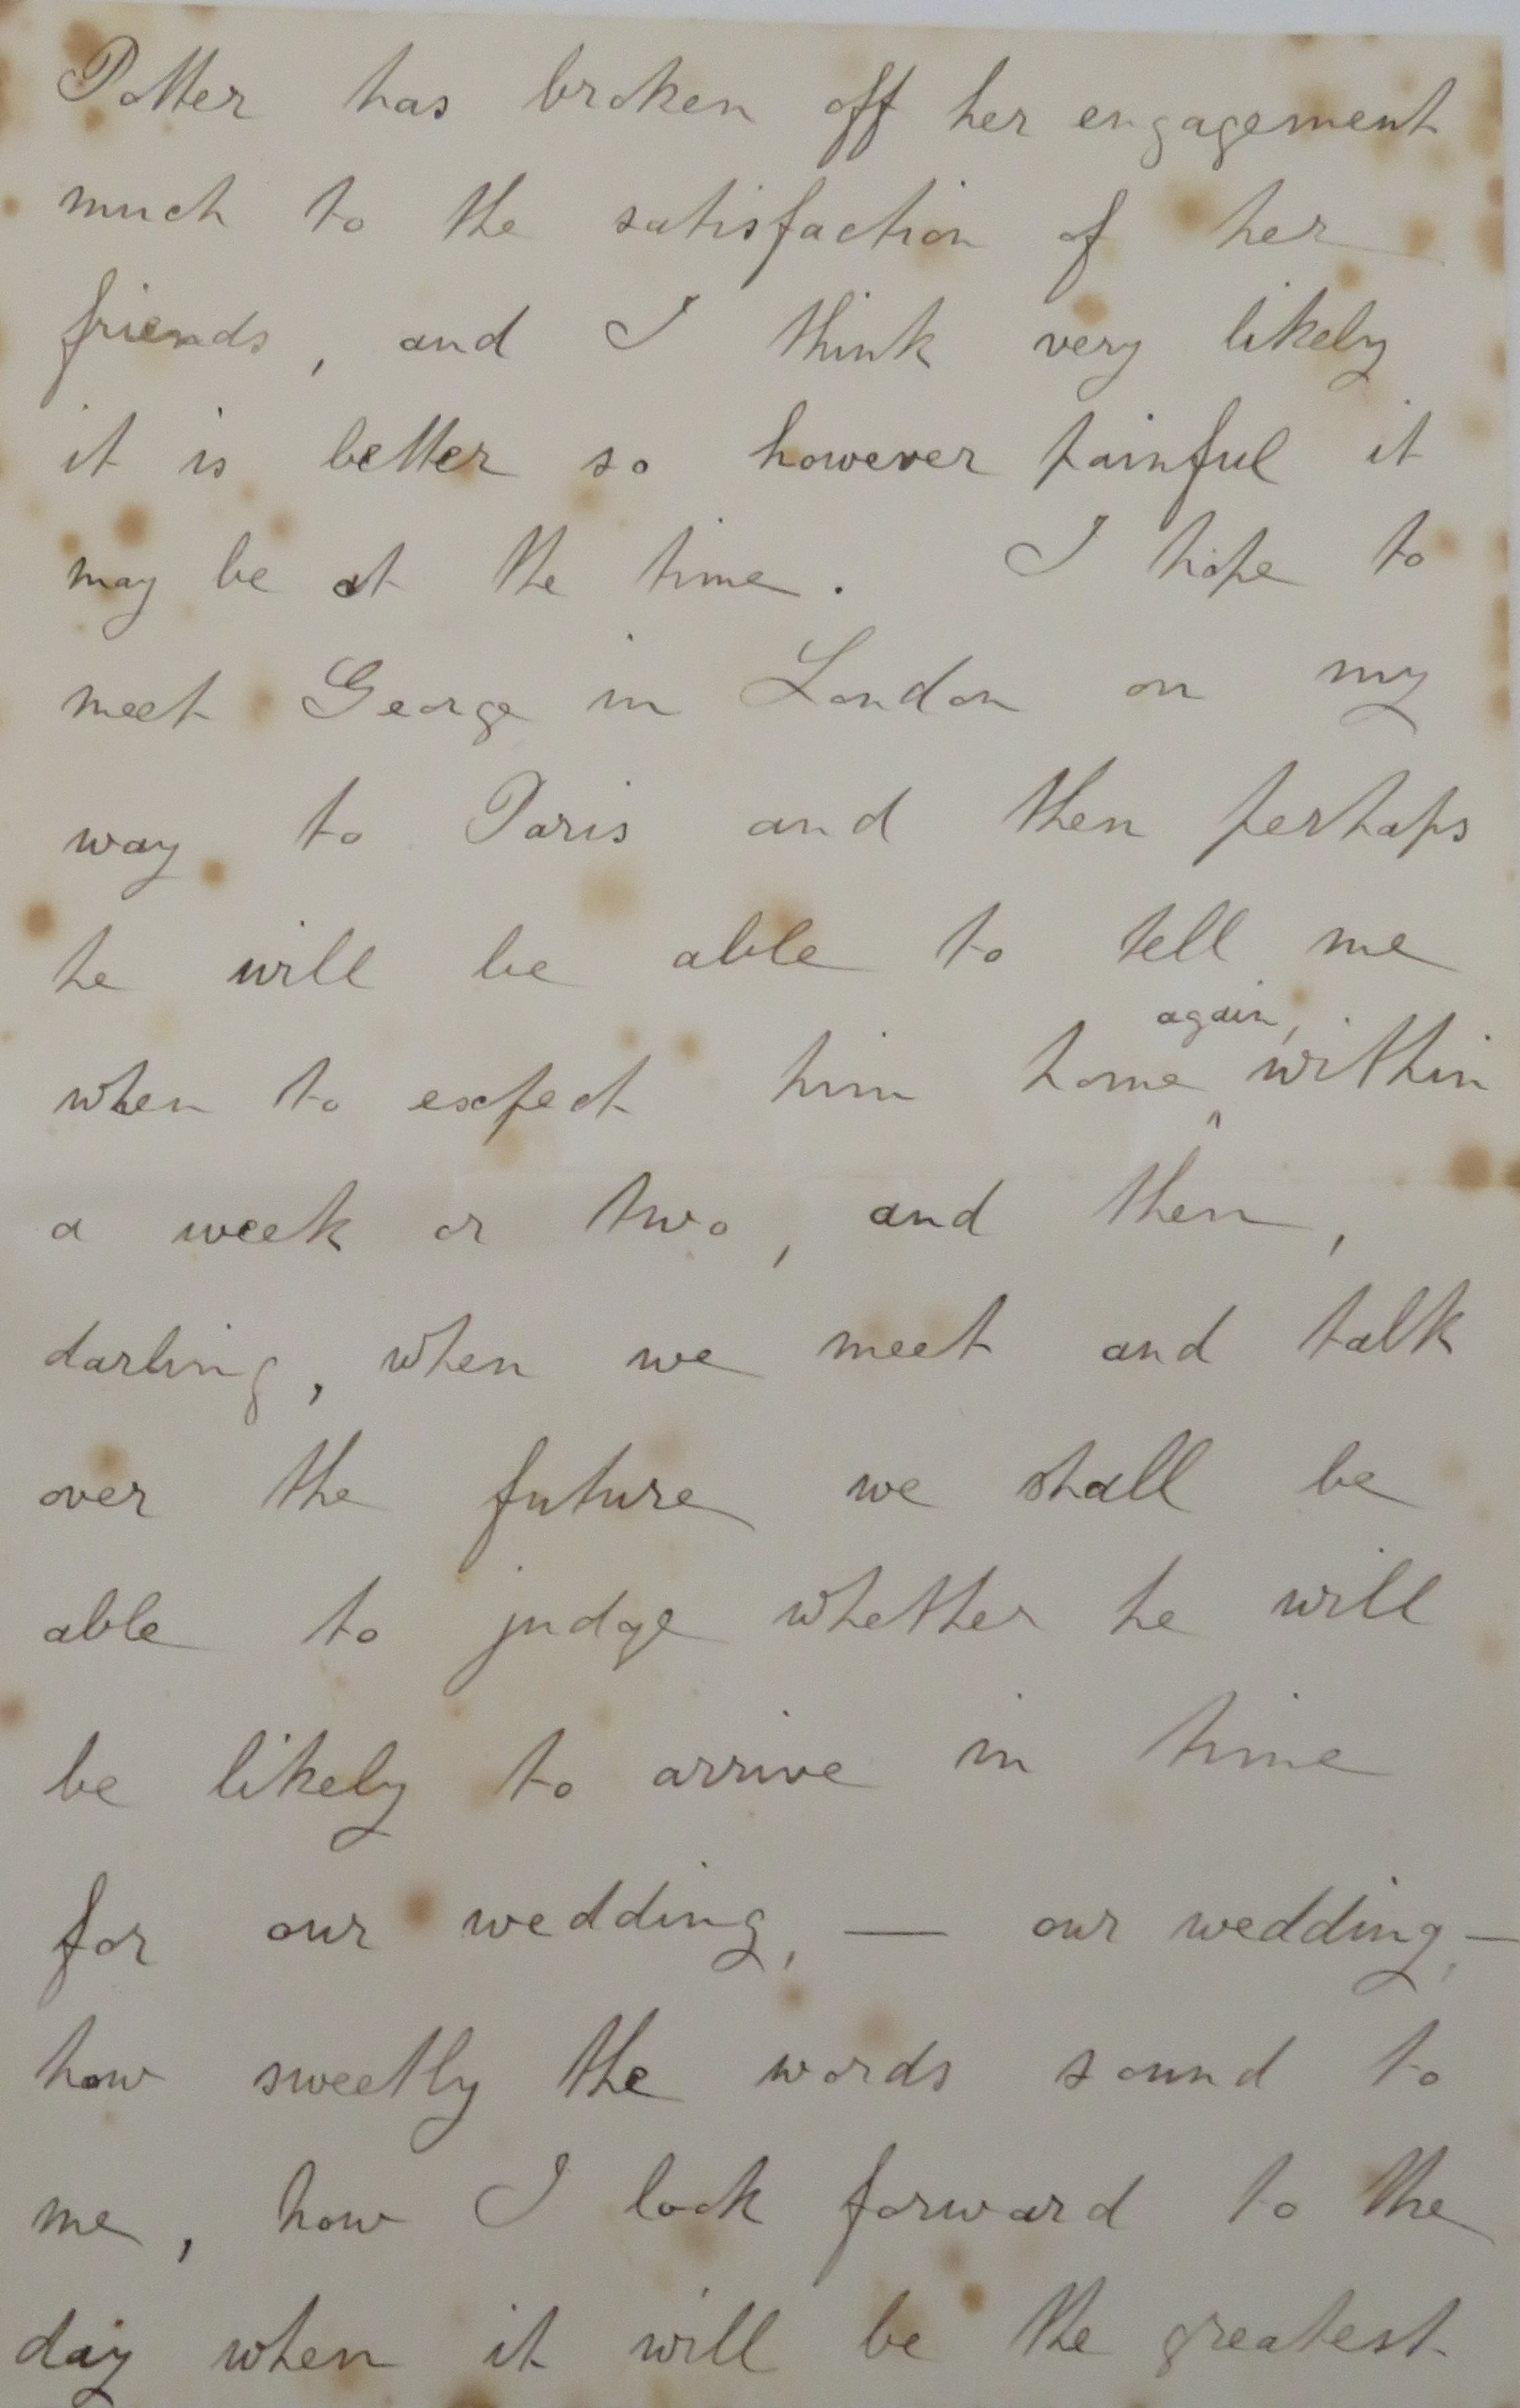 Potter has broken off her engagement
much to the satisfaction of her
friends, and I think very likely
it is better so however painful it
may be at the time. I hope to
meet George in London on my
way to Paris and then perhaps
he will be able to tell me
again,
when to expect him home ‸ within
a week or two, and then,
darling, when we meet and talk
over the future we shall be
able to judge whether he will
be likely to arrive in time
for our wedding, — our wedding, —
how sweetly the words sound to
me, how I look forward to the
day when it will be the greatest